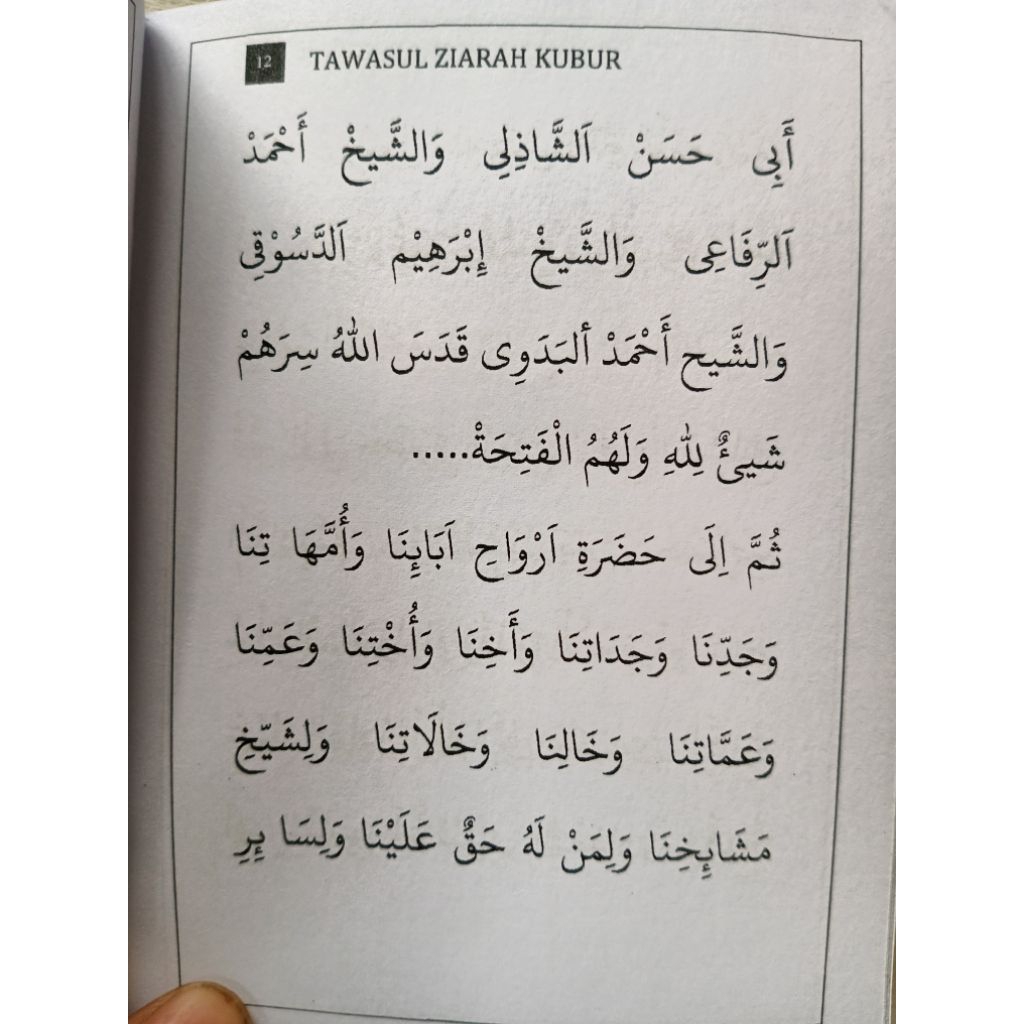 12 TAWASUL ZIARAH KUBUR
أَبِى حَسَنْ اَلشَّاذِلِى وَالشَّيخْ أَحْمَدْ
اَلرِّفَاعِى وَالشَّيخْ إِبْرَهِيْم اَلدَّسُوْقِى
وَالشَّيح أَحْمَدْ ألبَدَوِى قَدَسَ اللهُ سِرَهُمْ
شَيئٌ لِلهِ وَلَهُمُ الْفَتِحَةْ.....
ثُمَّ اِلَى حَضَرَةِ اَرْوَاحِ اَبَائِنَا وَأُمَّهَا تِنَا
وَجَدِّنَا وَجَدَاتِنَا وَأَخِنَا وَأُخْتِنَا وَعَمِّنَا
وَعَمَّاتِنَا وَخَالِنَا وَخَالَاتِنَا وَلِشَيّخِ
مَشَائِخِنَا وَلِمَنْ لَهُ حَقٌ عَلَيْنَا وَلِسَا ئِرِ